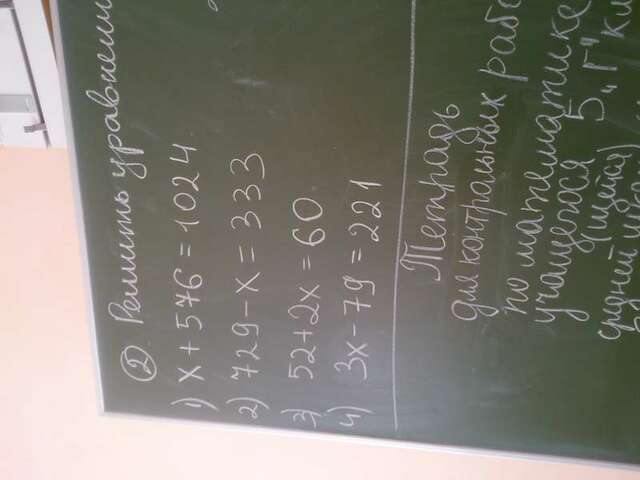 ② Решить уравнени
1) x + 576 = 1024
2) 729 - x = 333
3) 52 + 2x = 60
4) 3x - 79 = 221
Тетрадь
для контрольных рабо
по математике
учащегося 5 „Г" кл
(щейся)
средней